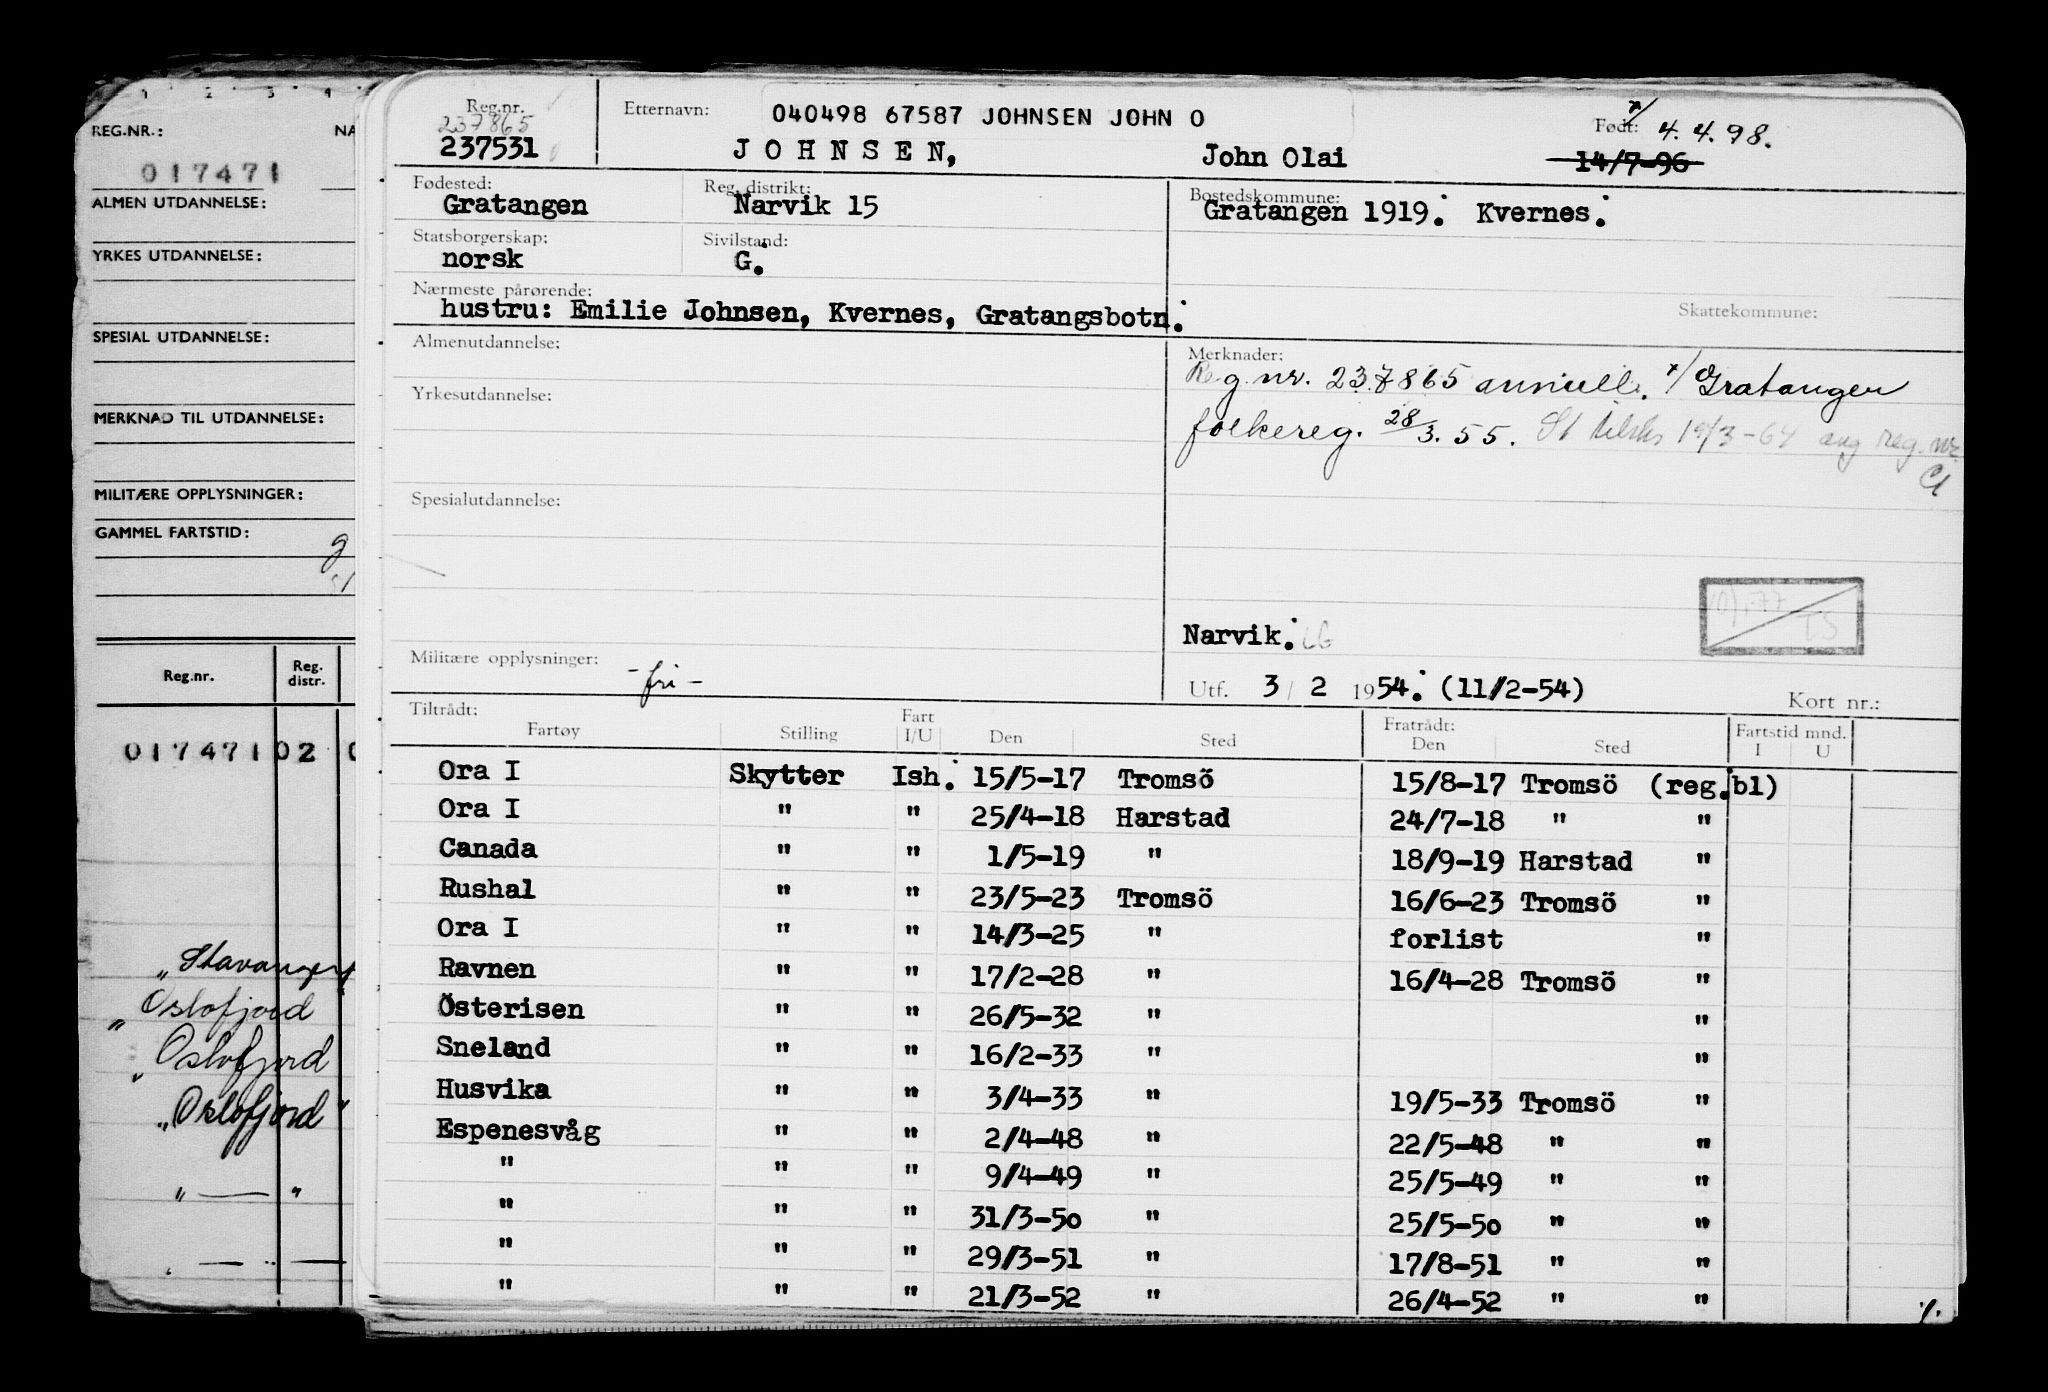 1 2 3 4
REG.NR.: NA
017471
ALMEN UTDANNELSE:
YRKES UTDANNELSE:
SPESIAL UTDANNELSE:
MERKNAD TIL UTDANNELSE:
MILITÆRE OPPLYSNINGER:
GAMMEL FARTSTID:
Reg.nr. Reg. distr.
017471 02 0
"Stavangerf
"Oslofjord
"Oslofjord
"Oslofjord"
" — "
" — " —
Reg.nr. Etternavn: 040498 67587 JOHNSEN JOHN O Født: x/ 4.4.98.
237865
237531 JOHNSEN, John Olai 14/7-96
Fødested: Reg. distrikt: Bostedskommune:
Gratangen Narvik 15 Gratangen 1919. Kvernes.
Statsborgerskap: Sivilstand:
norsk G.
Nærmeste pårørende: Skattekommune:
hustru: Emilie Johnsen, Kvernes, Gratangsbotn.
Almenutdannelse: Merknader:
Reg.nr. 237865 annull. x/ Gratangen
Yrkesutdannelse:
folkereg. 28/3.55. St tilskr 19/3-64 ang reg.nr.
Spesialutdannelse:
Narvik. LG
Militære opplysninger: -fri-
Utf. 3/2 1954. (11/2-54) Kort nr.:
Tiltrådt: Fratrådt: Fartstid mnd.
Fartøy Stilling Fart I/U Den Sted Den Sted I U
Ora I Skytter Ish. 15/5-17 Tromsö 15/8-17 Tromsö (reg.bl)
Ora I " " 25/4-18 Harstad 24/7-18 " "
Canada " " 1/5-19 " 18/9-19 Harstad "
Rushal " " 23/5-23 Tromsö 16/6-23 Tromsö "
Ora I " " 14/3-25 " forlist "
Ravnen " " 17/2-28 " 16/4-28 Tromsö "
Österisen " " 26/5-32 " "
Sneland " " 16/2-33 " "
Husvika " " 3/4-33 " 19/5-33 Tromsö "
Espenesvåg " " 2/4-48 " 22/5-48 " "
" " " 9/4-49 " 25/5-49 " "
" " " 31/3-50 " 25/5-50 " "
" " " 29/3-51 " 17/8-51 " "
" " " 21/3-52 " 26/4-52 " "
·/.